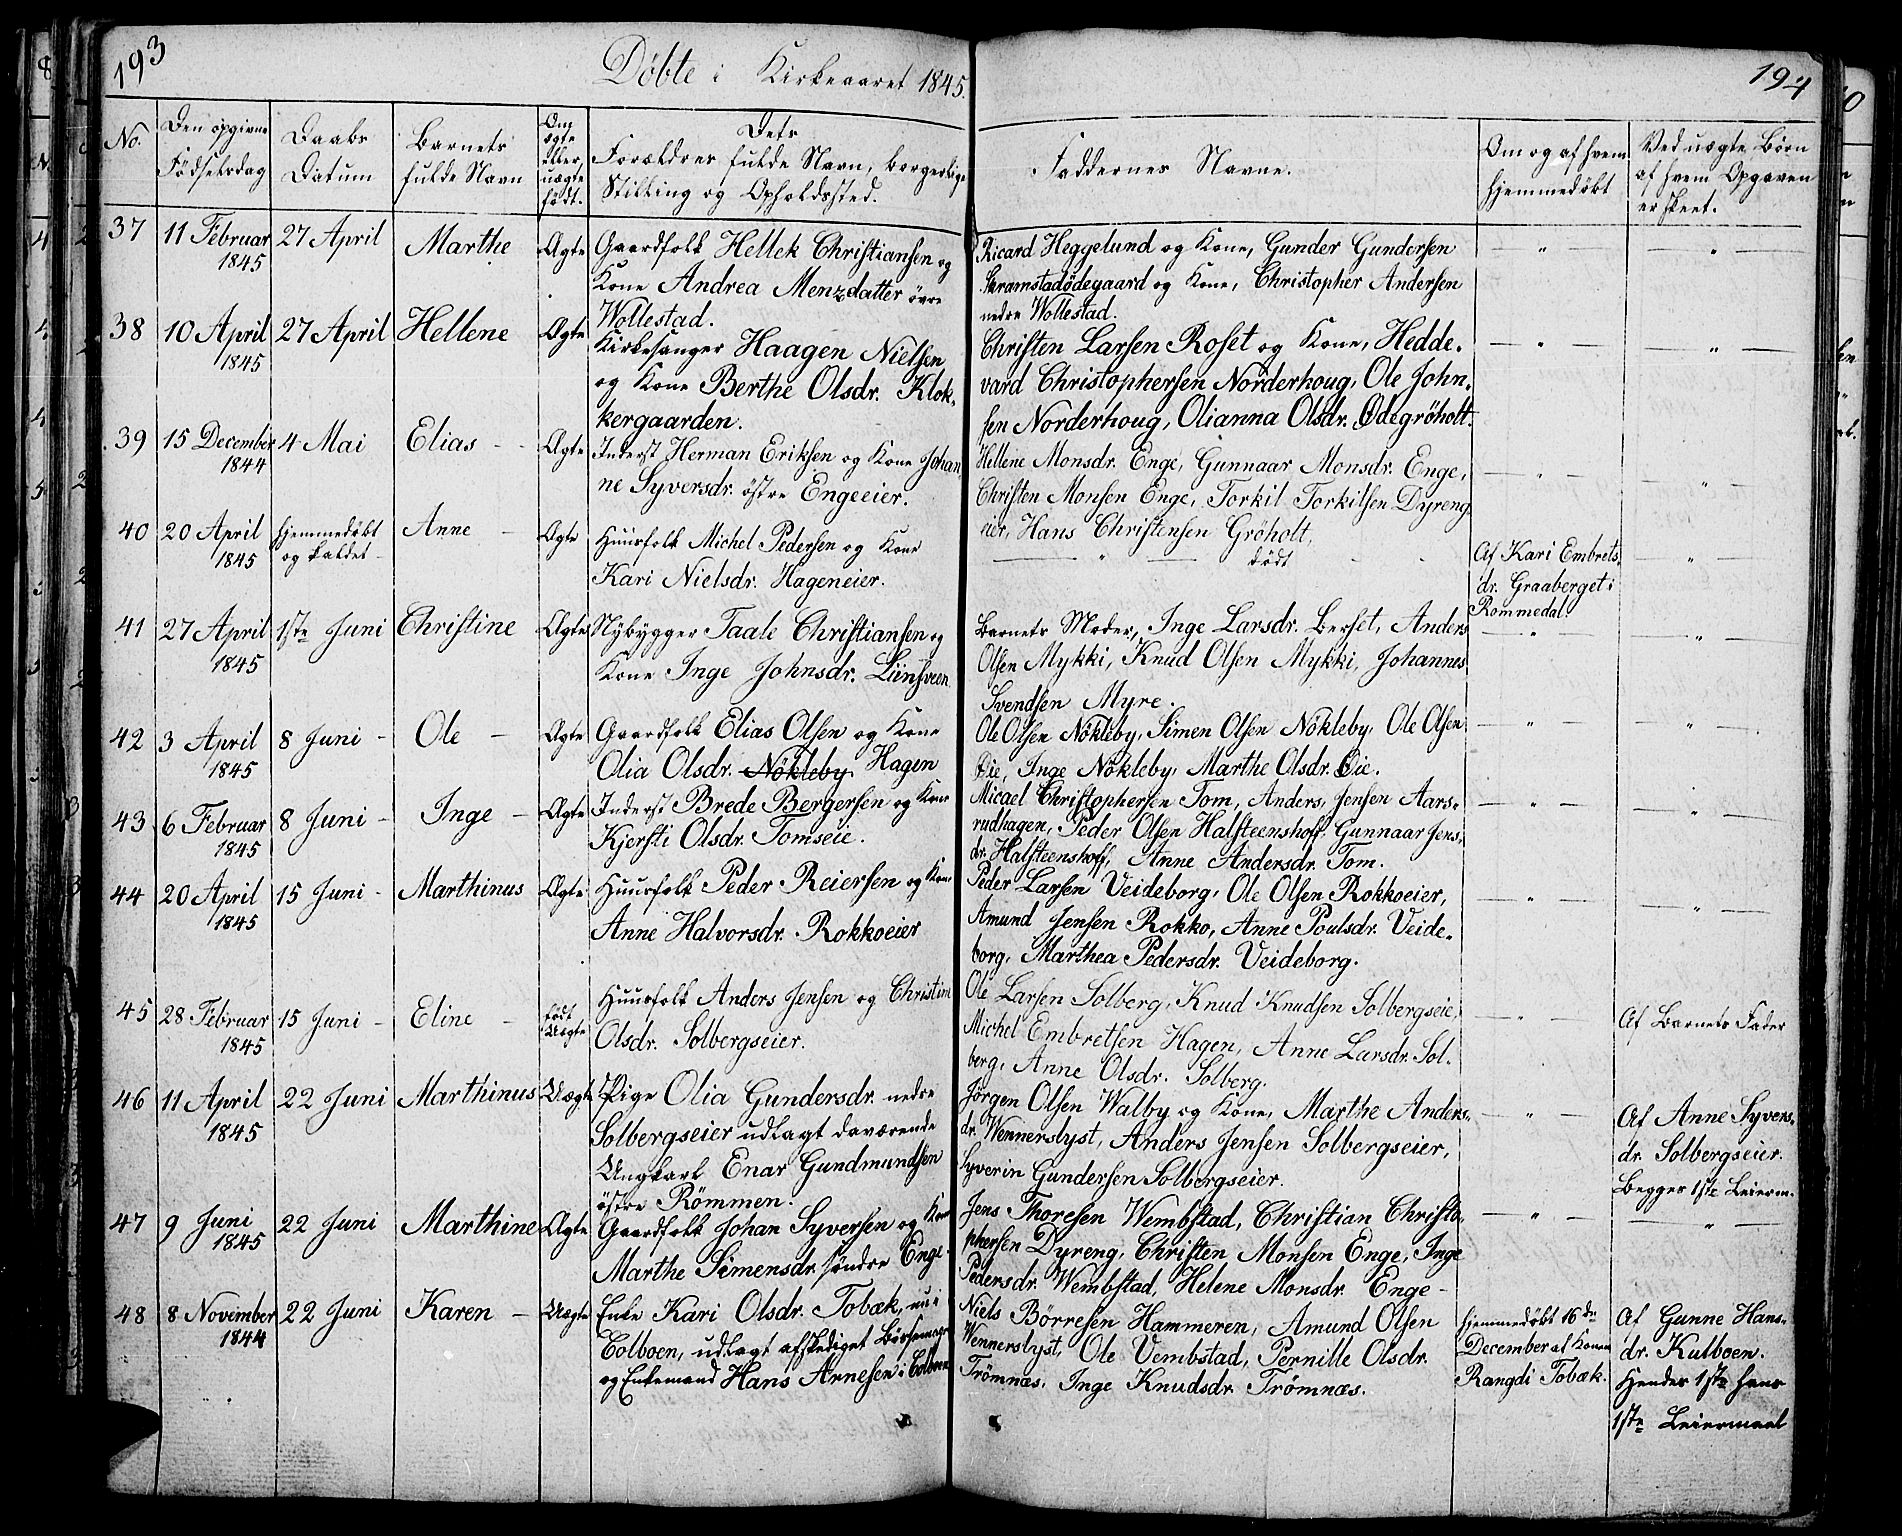 193
Døbte i Kirkeaaret 1845.
194
No.
Den opgivne Fødselsdag
Daabs Datum
Barnets fulde Navn
Om ægte eller uægte født.
Dets Forældres fulde Navn, borgerlige Stilling og Opholdssted.
Faddernes Navne.
Om og af hvem hjemmedøbt
Ved uægte Børn af hvem Opgaven er skeet.
37 11 Februar 1845 27 April Marthe Ægte
Gaardfolk Hellek Christiansen og
Kone Andrea Menzdatter övre
Wollestad.
Ricard Heggelund og Kone, Gunder Gundersen
Skramstadödegaard og Kone, Christopher Andersen
nedre Wollestad.
38 10 April 1845 27 April Hellene Ægte
Kirkesanger Haagen Nielsen
og Kone Berthe Olsdr. Klok-
kergaarden.
Christen Larsen Roset og Kone, Hedde-
vard Christophersen Norderhoug, Ole John-
sen Norderhoug, Olianna Olsdr. Ødegröholt.
39 15 December 1844 4 Mai Elias Ægte
Inderst Herman Eriksen og Kone Johan
ne Syversdr. östre Engeeier.
Hellene Monsdr. Enge, Gunnaar Monsdr. Enge,
Christen Monsen Enge, Torkil Torkilsen Dyreng
eier, Hans Christensen Gröholt.
40 20 April 1845 hjemmedøbt og kaldet Anne Ægte
Huusfolk Michel Pedersen og Kone
Kari Nielsdr. Hageneier.
død
Af Kari Embrets-
dr. Graaberget i
Rommedal.
41 27 April 1845 1ste Juni Christine Ægte
Nybygger Taale Christiansen og
Kone Inge Johnsdr. Liinsveen
Barnets Moder, Inge Larsdr. Berset, Anders
Olsen Mykki, Knud Olsen Mykki, Johannes
Svendsen Myre.
42 3 April 1845 8 Juni Ole Ægte
Gaardfolk Elias Olsen og Kone
Olia Olsdr. Nökleby Hagen
Ole Olsen Nökleby, Simen Olsen Nökleby, Ole Olsen
Øie, Inge Nökleby, Marthe Olsdr. Øie.
43 6 Februar 1845 8 Juni Inge Ægte
Inderst Brede Bergersen og Kone
Kjersti Olsdr. Tomseie.
Micael Christophersen Tom, Anders Jensen Aars-
rudhagen, Peder Olsen Halsteenshoff, Gunnaar Jens-
dr. Halsteenshoff, Anne Andersdr. Tom.
44 20 April 1845 15 Juni Marthinus Ægte
Huusfolk Peder Reiersen og Kone
Anne Halvorsdr. Rokkoeier
Peder Larsen Veideborg, Ole Olsen Rokkoeier,
Amund Jensen Rokko, Anne Poulsdr. Veide-
borg, Marthea Pedersdr. Veideborg.
45 28 Februar 1845 15 Juni Eline født Uægte
Huusfolk Anders Jensen og Christine
Olsdr. Solbergseier.
Ole Larsen Solberg, Knud Knudsen Solbergseie,
Michel Embretsen Hagen, Anne Larsdr. Sol-
berg, Anne Olsdr. Solberg.
Af Barnets Fader
46 11 April 1845 22 Juni Marthinus Uægte
Pige Olia Gundersdr. nedre
Solbergseier udlagt daværende
Ungkarl Enar Gundmundsen
östre Römmen.
Jörgen Olsen Walby og Kone, Marthe Anders-
dr. Wennerslyst, Anders Jensen Solbergseier,
Syverin Gundersen Solbergseier.
Af Anne Syvers-
dr. Solbergseier.
Begges 1ste Leierm.
47 9 Juni 1845 22 Juni Marthine Ægte
Gaardfolk Johan Syversen og Kone
Marthe Simensdr. söndre Enge
Jens Thoresen Wembstad, Christian Christo-
phersen Dyreng, Christen Monsen Enge, Inge
Pedersdr. Wembstad, Helene Monsdr. Enge
48 8 November 1844 22 Juni Karen Uægte
Enke Kari Olsdr. Tobæk, nu i
Colboen, udlagt afskediget
og Enkemand Hans Arnesen i Colboen
Niels Börresen Hammeren, Amund Olsen
Wennerslyst, Ole Vembstad, Pernille Olsdr.
Trömnæs, Inge Knudsdr. Trömnæs.
hjemmedøbt 16de
December af Konen
Rangdi Tobæk.
Af Gunne Hans-
dr. Kulboen.
Hendes 1ste hans
1ste Leiermaal